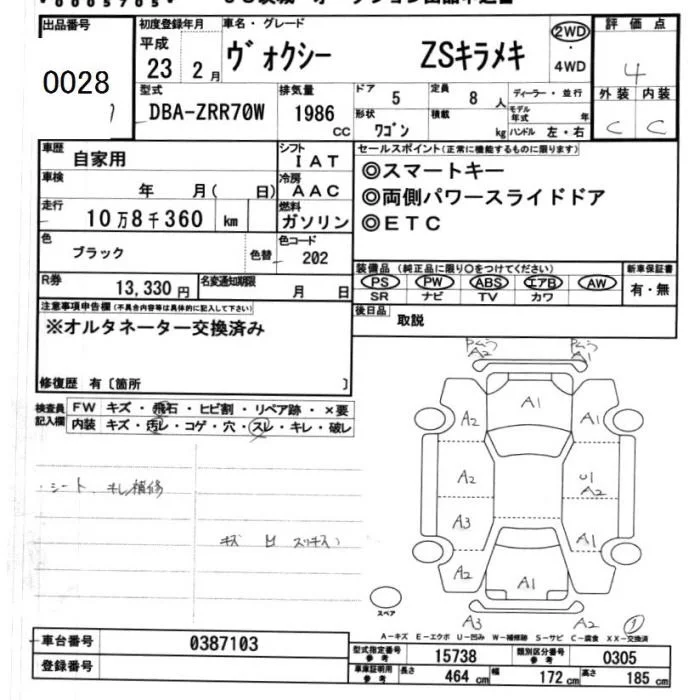 出品番号 初度登録年月 車名・グレード 2WD 評価点
平成 ヴォクシー ZSキラメキ ・
23 2 月 4WD 4
0028 型式 排気量 ドア 5 定員 8 人 ディーラー・並行 外装 内装
DBA-ZRR70W 1986 CC 形状 ワゴン 積載 kg モデル年式 年 C C
ハンドル 左・右
車歴 自家用 シフト IAT セールスポイント(正常に機能するものに限ります)
車検 年 月( 日) 冷房 AAC ◎スマートキー
走行 10万8千360 km 燃料 ガソリン ◎両側パワースライドドア
◎ETC
色 ブラック 色替 色コード 202
装備品 (純正品に限り○をつけてください) 新車保証書
R券 13,330円 名変通知期限 月 日 PS PW ABS エアB AW 有・無
SR ナビ TV カワ
注意事項申告欄(不具合内容等は具体的に記入して下さい) 後日品 取説
※オルタネーター交換済み
修復歴 有〔箇所 〕
検査員記入欄 FW キズ・飛石・ヒビ割・リペア跡・×要
内装 キズ・汚レ・コゲ・穴・スレ・キレ・破レ
A2 A1
A1
A2 A1
A2 U1 A2
A3 A1
A2 A1
A3 A2 1
・シート キレ補修
キズ
スペア
A-キズ E-エクボ U-凹み W-補修跡 S-サビ C-腐食 XX-交換済
車台番号 0387103 型式指定番号 参考 15738 類別区分番号 参考 0305
登録番号 車庫証明用 参考 長さ 464 cm 幅 172 cm 高さ 185 cm